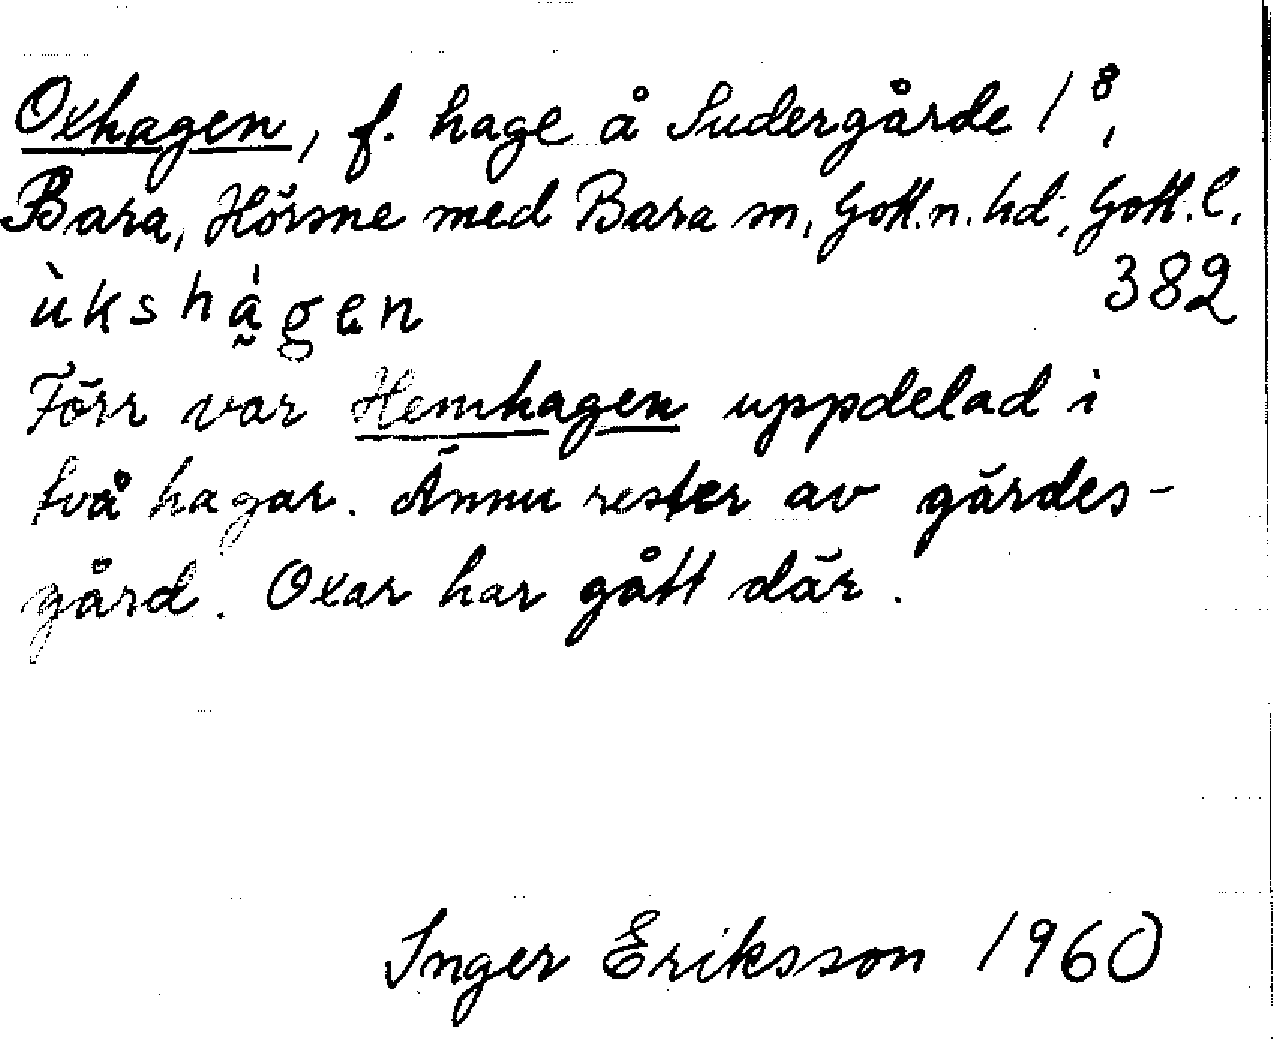 Oxhagen, f. hage å Sudergårde 1⁸,
Bara, Hörsne med Bara sn, Gotl.n.hd, Gotl.l.
ùkshạ̀gen 382
Förr var Hemhagen uppdelad i
två hagar. Ännu rester av gärdes-
gård. Oxar har gått där.
Inger Eriksson 1960